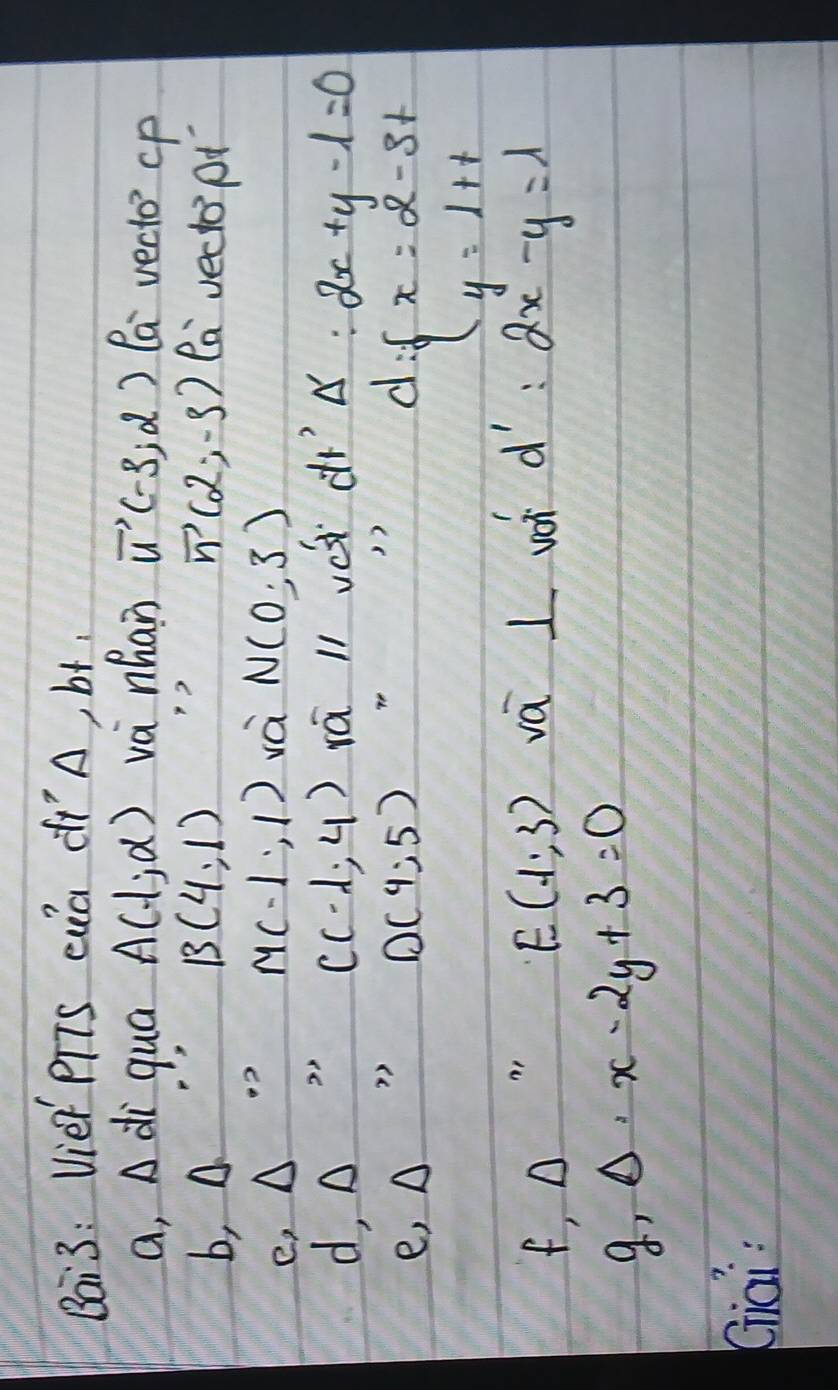 Bài 3: Viết PTTS của đt Δ, bt.
a, Δ đi qua A(1;2) và nhận u⃗(-3;2) là vectơ cp
b, Δ " B(4;1) " n⃗(2;-3) là vectơ pt
c, Δ " M(-1;1) và N(0;3)
d, Δ " C(-1;4) và // với đt Δ' : 2x+y-1=0
e, Δ " D(4;5) " " d:{ x = 2-3t
y = 1+t
f, Δ " E(1;3) và ⊥ với d' : 2x-y=1
g, Δ : x-2y+3=0
Giải: